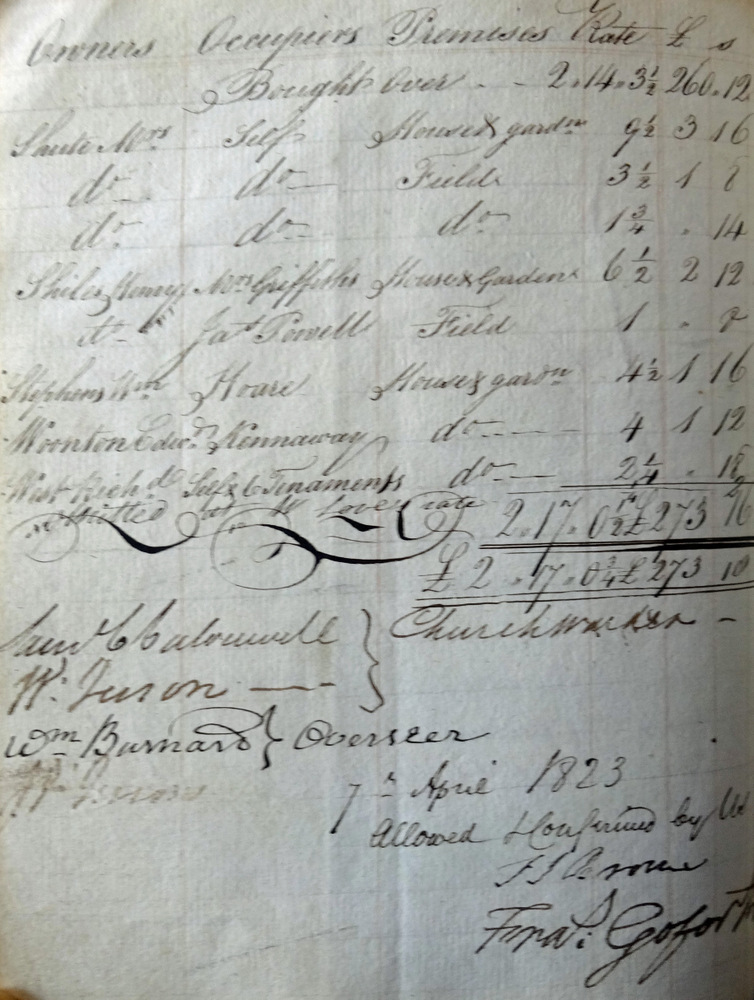 Owners Occupiers Premises Rate £ s
Bought Over - - 2.14.3½ 260.12
Shute Mrs Self House & gardn 9½ 3 16
do do Field 3½ 1 8
do do do 1¾ . 14
Shiles Henry Mrs Griffiths House & Garden 6½ 2 12
do Jas Powell Field 1 . 8
Stephens Wm Hoare House & gardn 4½ 1 16
Woonton Edwd Kennaway do 4 1 12
West Richd Self & 6 Tenaments do 2¼ . 18
Omitted rate
2.17.0½ £273
£2.17.0¾ £273 10
Churchwarden -
Wm Burnard } Overseer
7th April 1823
Allowed & Confirmed by Us
Browne
Fras. Goforth